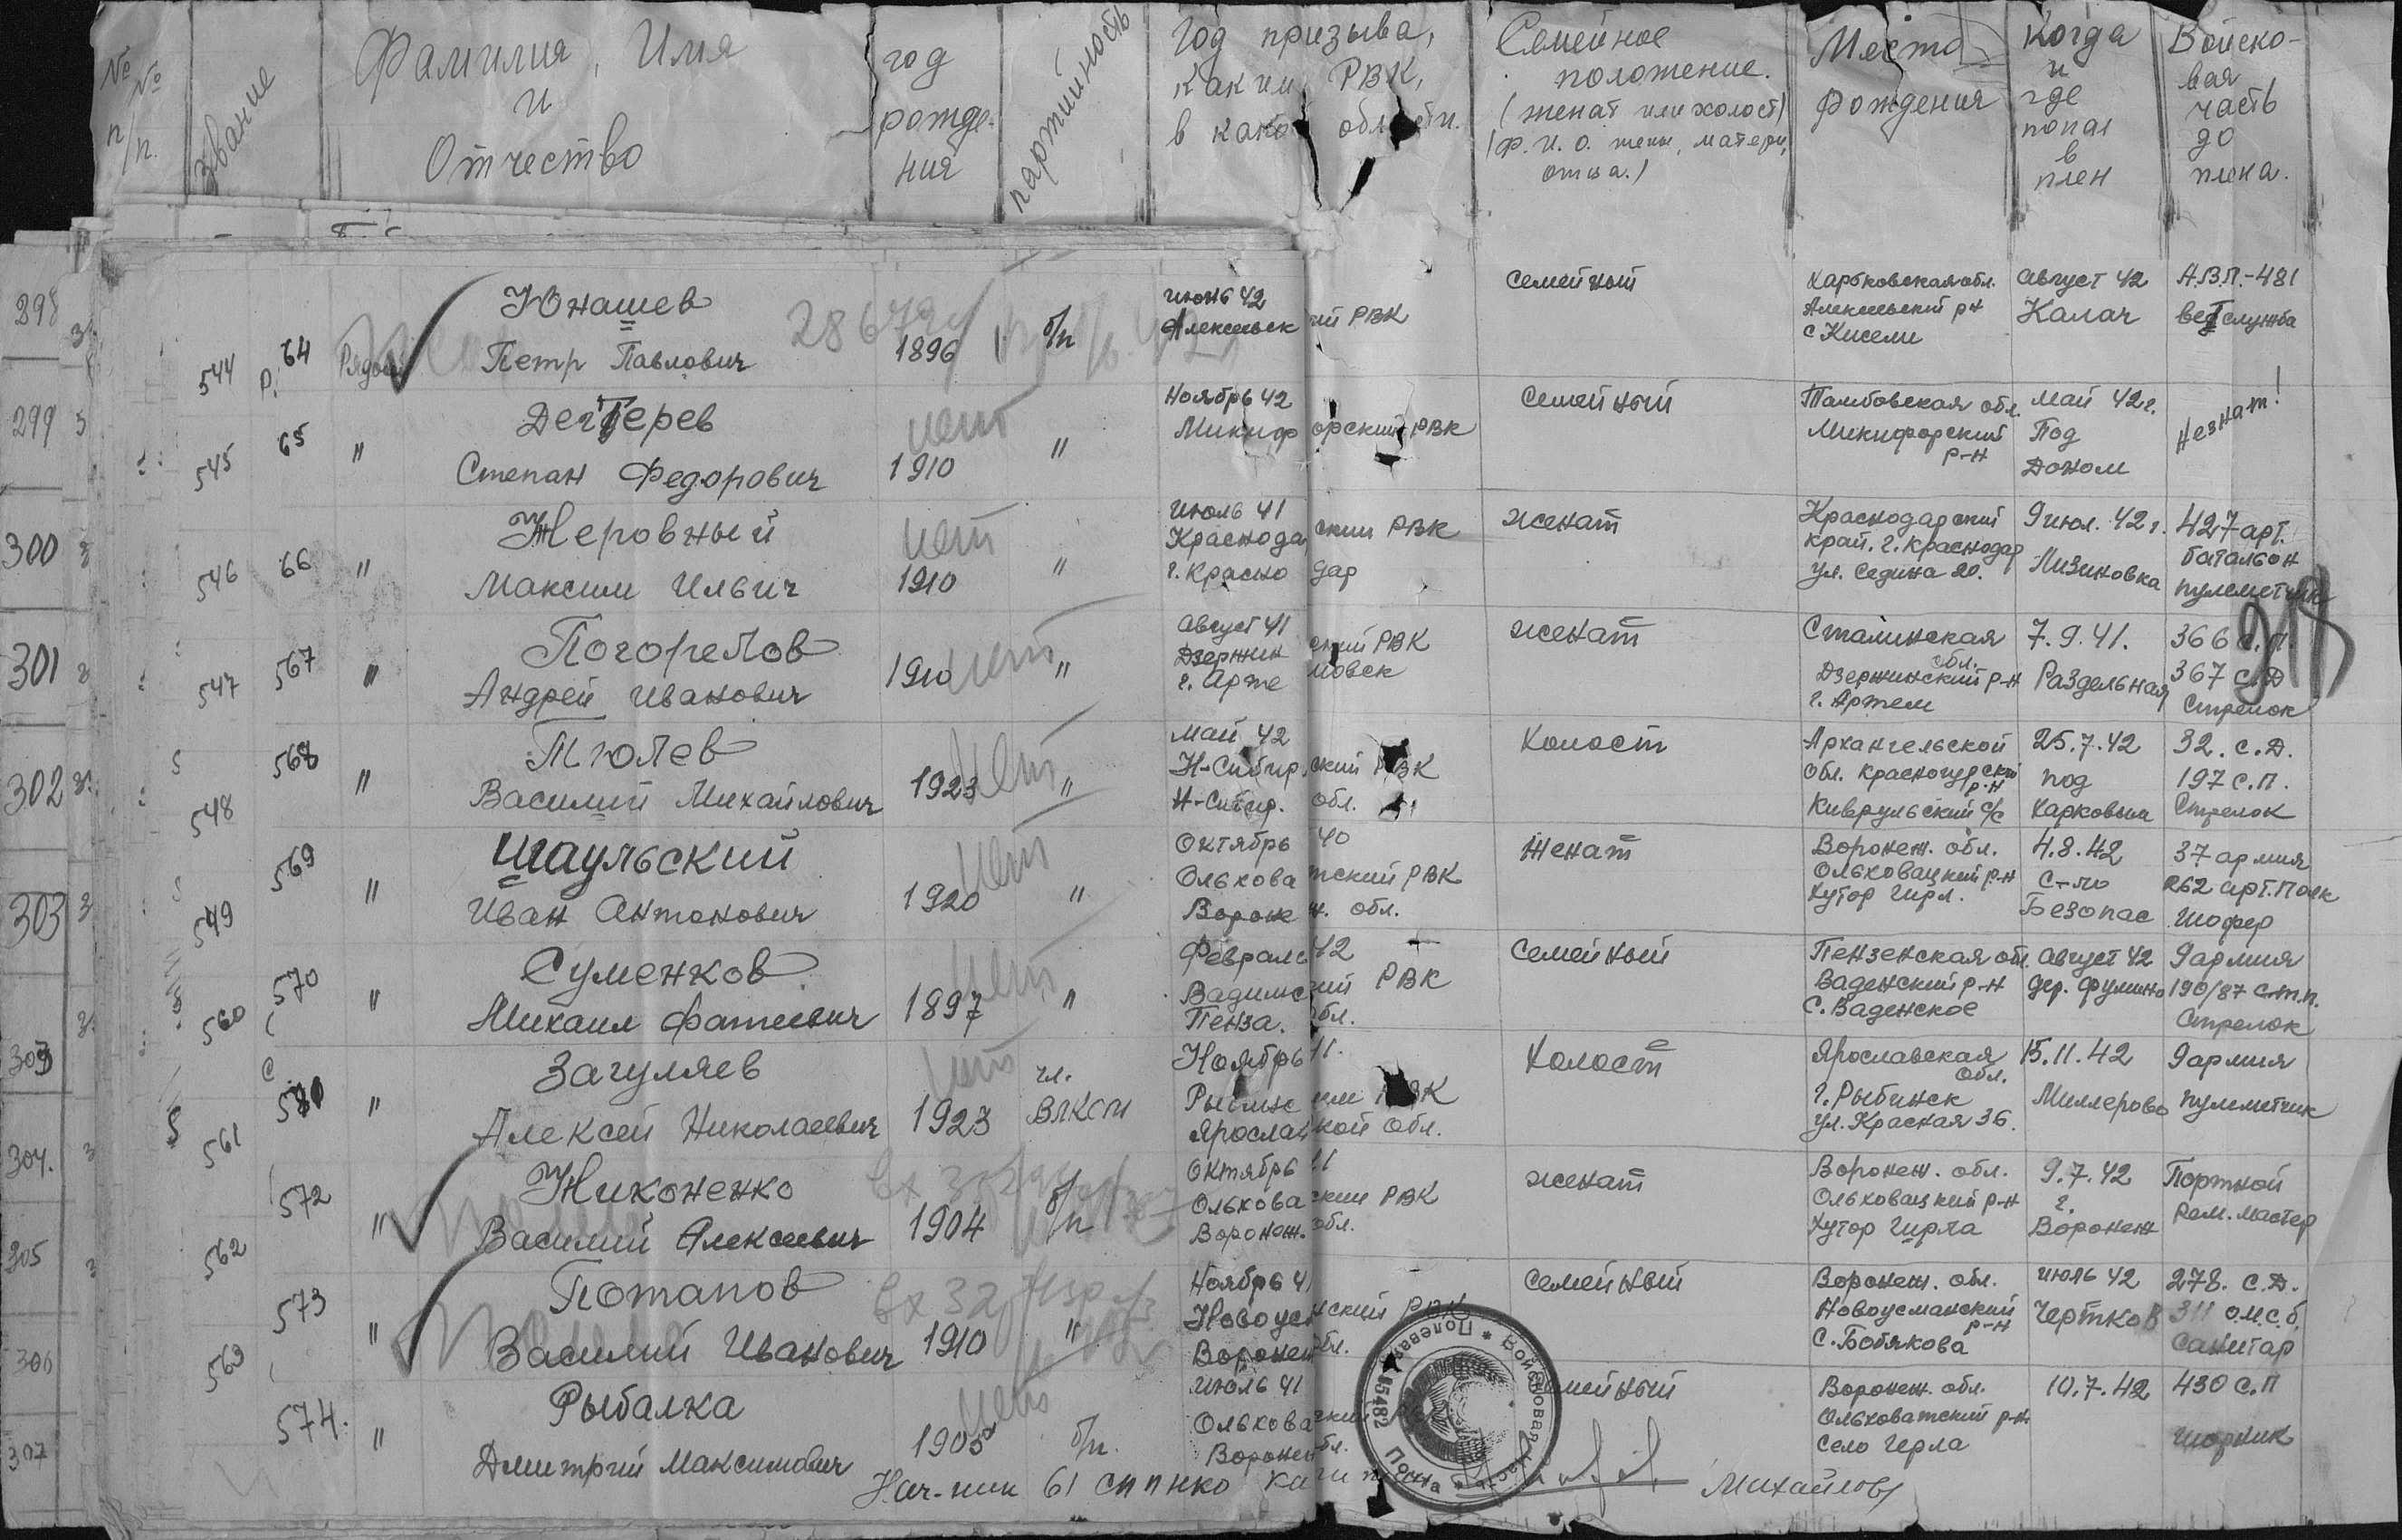 № № п/п.
звание
Фамилия, Имя
и
Отчество
год
рожде-
ния
партийность
Год призыва,
каким РВК,
в како области.
Семейное
положение.
(женат или холост)
(Ф. И. О. жены, матери,
отца.)
Место
рождения
Когда
и
где
попал
в
плен
Войско-
вая
часть
до
плена.
298
544 64 Рядов
Юнашев
Петр Павлович
1896 б/п
июнь 42
Алексеевск ий РВК
семейный
Харьковская обл.
Алексеевский р-н
с Кисели
август 42
Калач
А.В.П.-481
вет служба
299
545 65 "
Дегтерев
Степан Федорович
нет
1910 "
Ноябрь 42
Микиф орский РВК
семейный
Тамбовская обл.
Микифорский
р-н
май 42 г.
Под
Доном
Незнат!
300
546 66 "
Жеровный
Максим Ильич
нет
1910 "
июль 41
Краснода ский РВК
г. Красно дар
женат
Краснодарский
край. г. Краснодар
ул. Седина 20.
9 июл. 42 г.
Лизиновка
427 арт.
батальон
пулеметчик
301
547 567 "
Погорелов
Андрей Иванович
1910 нет "
август 41
Дзержин ский РВК
г. Арте мовск
женат
Сталинская
обл.
Дзержинский р-н
г. Артем
7.9.41.
Раздельная
366 с.п.
367 с.д
Стрелок
302
548 568 "
Тюлев
Василий Михайлович
1923 нет "
май 42
Н-Сибир. ский РВК
Н-Сибир. обл.
Холост
Архангельской
обл. Красногурский
р-н
Киврульский с/с
25.7.42
под
Харковым
32. с.д.
197 с.п.
Стрелок
303
549 569 "
Шаульский
Иван Антонович
нет
1920 "
Октябрь 40
Ольхова тский РВК
Вороне ж. обл.
Женат
Воронеж. обл.
Ольховацкий р-н
Хутор Гирл.
4.8.42
с-ло
Безопас
37 армия
262 арт. полк
Шофер
560 570 "
Суменков
Михаил Фатеевич
нет
1897 "
Февраль 42
Вадинс кий РВК
Пенза. обл.
семейный
Пензенская обл.
Ваденский р-н
С. Ваденское
август 42
дер. Фумино
9 армия
190/87 с.т.п.
Стрелок
303
561 "
Загуляев
Алексей Николаевич
нет
1923
чл.
ВЛКСМ
Ноябрь 41.
Рыбинс ким РВК
Ярослав кой обл.
Холост
Ярославская
обл.
г. Рыбинск
ул. Красная 36.
15.11.42
Миллерово
9 армия
пулеметчик
304.
562 572 "
Никоненко
Василий Алексеевич
1904 б/п
Октябрь 41
Ольхова ский РВК
Воронеж. обл.
женат
Воронеж. обл.
Ольховацкий р-н
Хутор Гирла
9.7.42
г.
Воронеж
Портной
рем. мастер
305
563 573 "
Потапов
Василий Иванович
1910 "
Ноябрь 41
Новоус нский РВК
Воронеж обл.
семейный
Воронеж. обл.
Новоусманский
р-н
С. Бобякова
июль 42
Чертков
278. с.д.
311 омсб.
Санитар
306
574. "
Рыбалка
Дмитрий Максимович
нет
1905 б/п.
июль 41
Ольхова цкий
Воронеж обл.
семейный
Воронеж. обл.
Ольховатский р-н
Село Герла
10.7.42
430 с.п
шорник
307
Войсковая часть
Полевая Почта
15482
Нач-ник 61 сппнко капитан
Михайлов